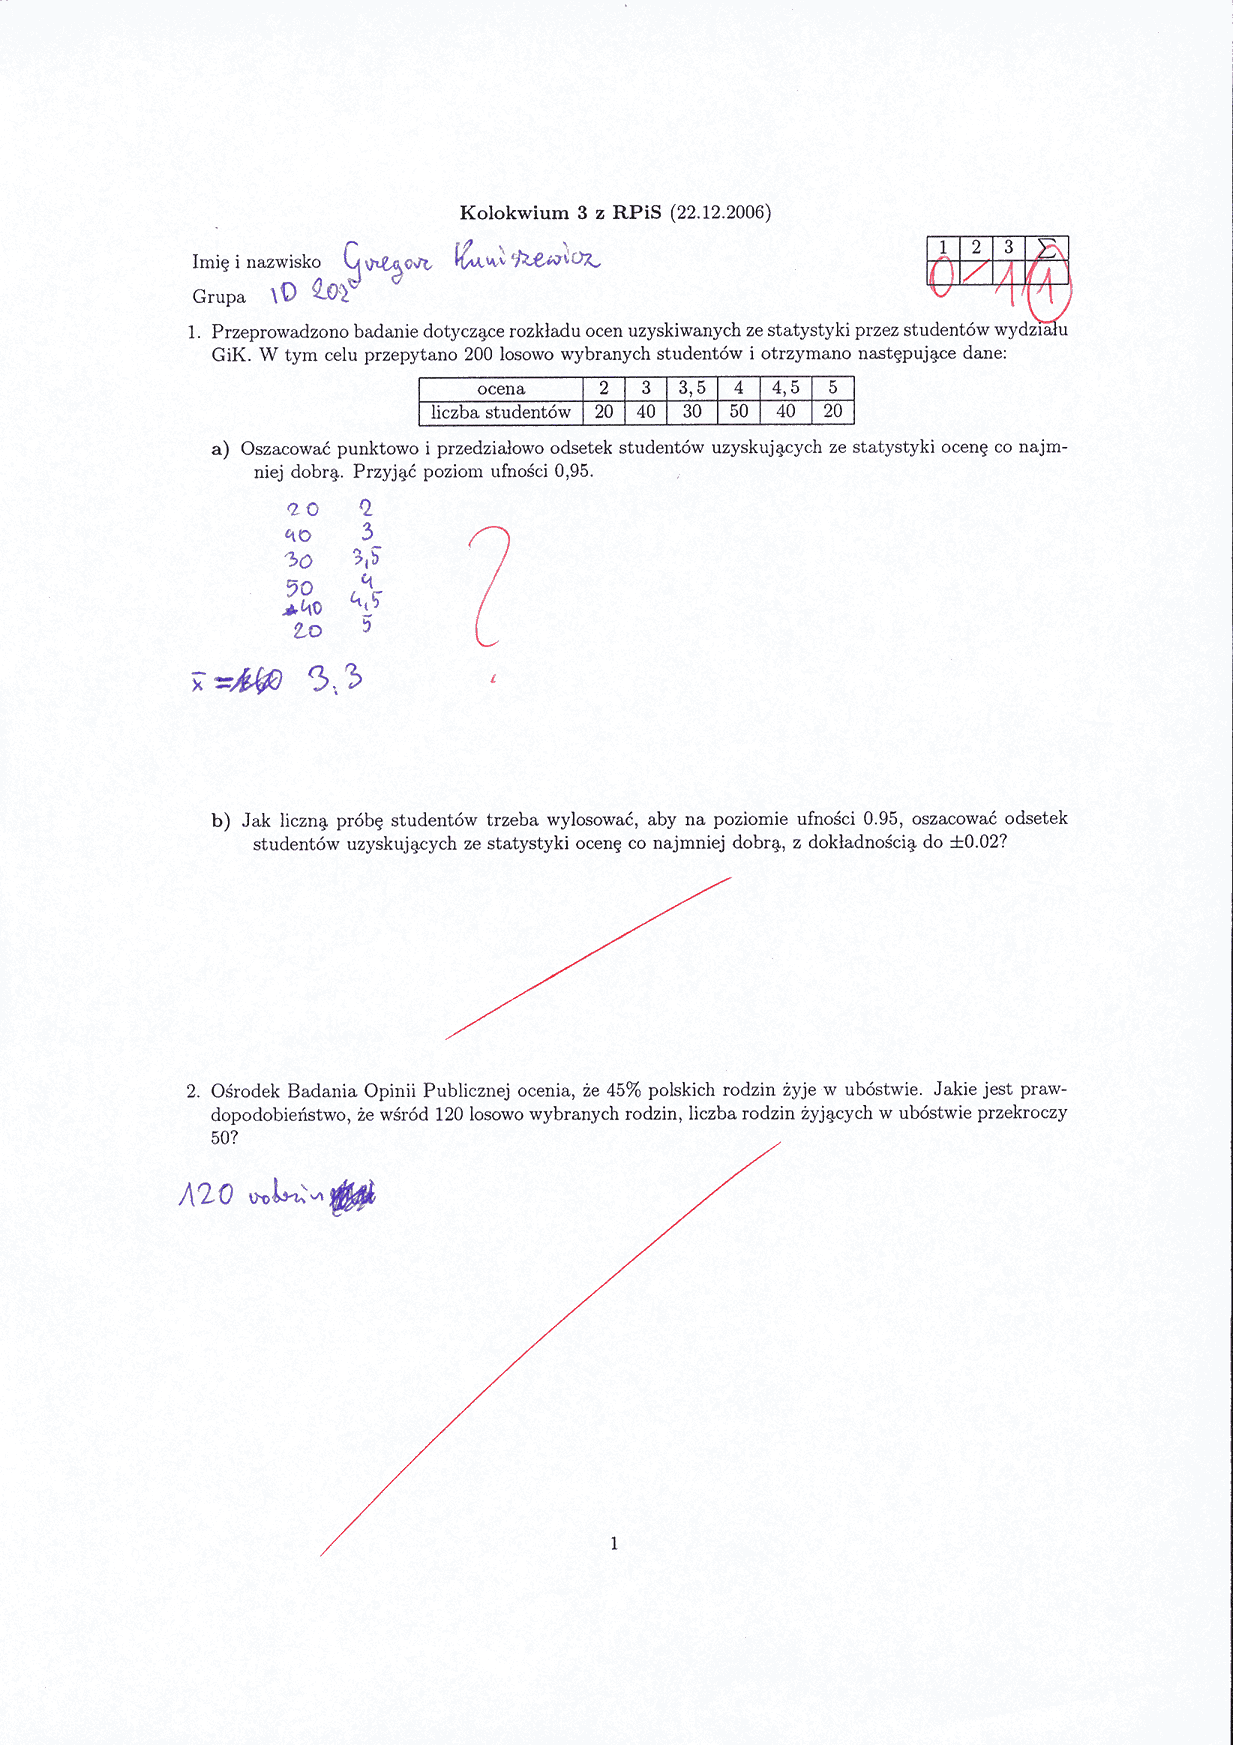 Kolokwium 3 z RPiS (22.12.2006)
Imię i nazwisko Grzegorz
Grupa 1D
1 2 3 Σ
0 / 1 1
1. Przeprowadzono badanie dotyczące rozkładu ocen uzyskiwanych ze statystyki przez studentów wydziału
GiK. W tym celu przepytano 200 losowo wybranych studentów i otrzymano następujące dane:
ocena 2 3 3,5 4 4,5 5
liczba studentów 20 40 30 50 40 20
a) Oszacować punktowo i przedziałowo odsetek studentów uzyskujących ze statystyki ocenę co najm-
niej dobrą. Przyjąć poziom ufności 0,95.
20 2
40 3
30 3,5
50 4
40 4,5
20 5
?
x̄ = 3.3
b) Jak liczną próbę studentów trzeba wylosować, aby na poziomie ufności 0.95, oszacować odsetek
studentów uzyskujących ze statystyki ocenę co najmniej dobrą, z dokładnością do ±0.02?
2. Ośrodek Badania Opinii Publicznej ocenia, że 45% polskich rodzin żyje w ubóstwie. Jakie jest praw-
dopodobieństwo, że wśród 120 losowo wybranych rodzin, liczba rodzin żyjących w ubóstwie przekroczy
50?
120 rodzin
1